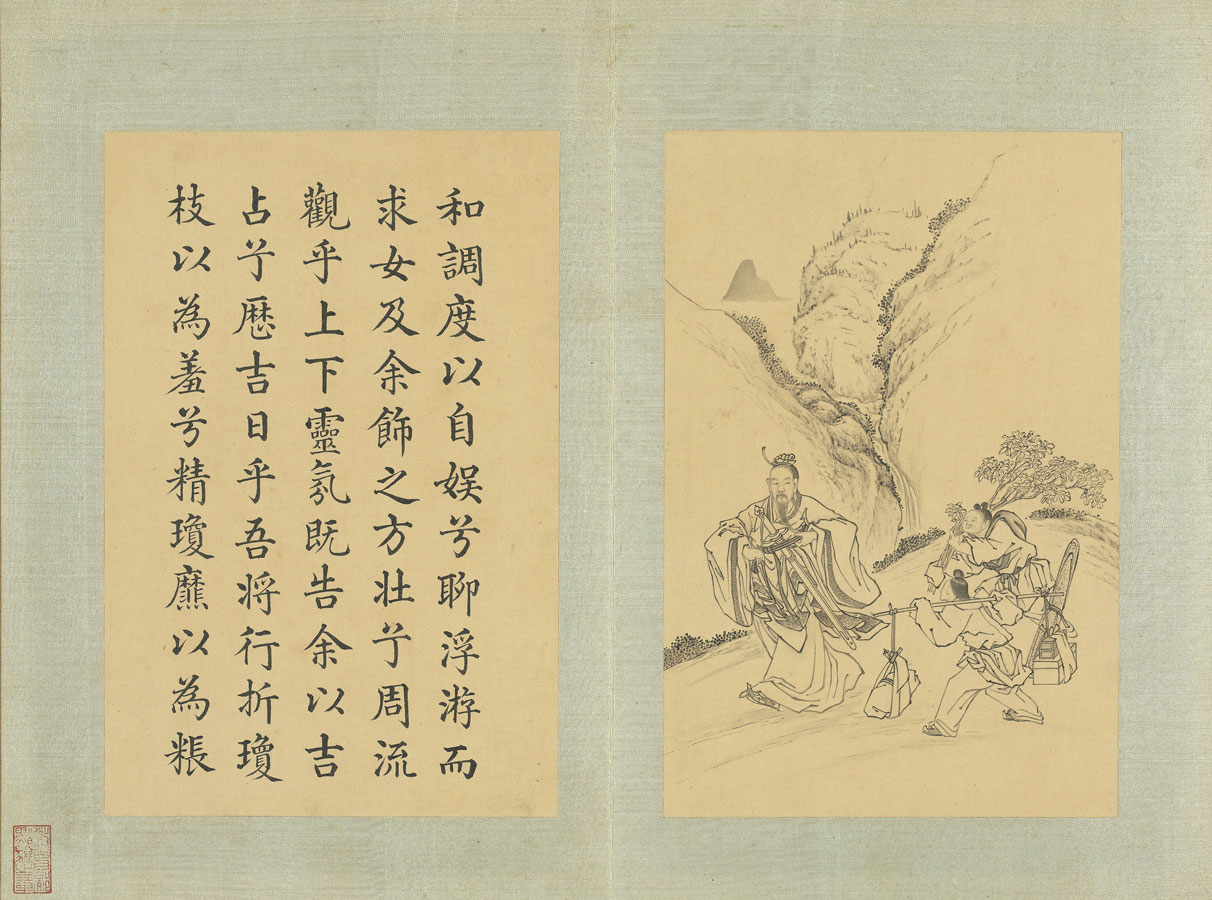 和調度以自娱兮聊浮游而
求女及余飾之方壮兮周流
觀乎上下靈氛既告余以吉
占兮歴吉日乎吾将行折瓊
枝以為羞兮精瓊爢以為粻